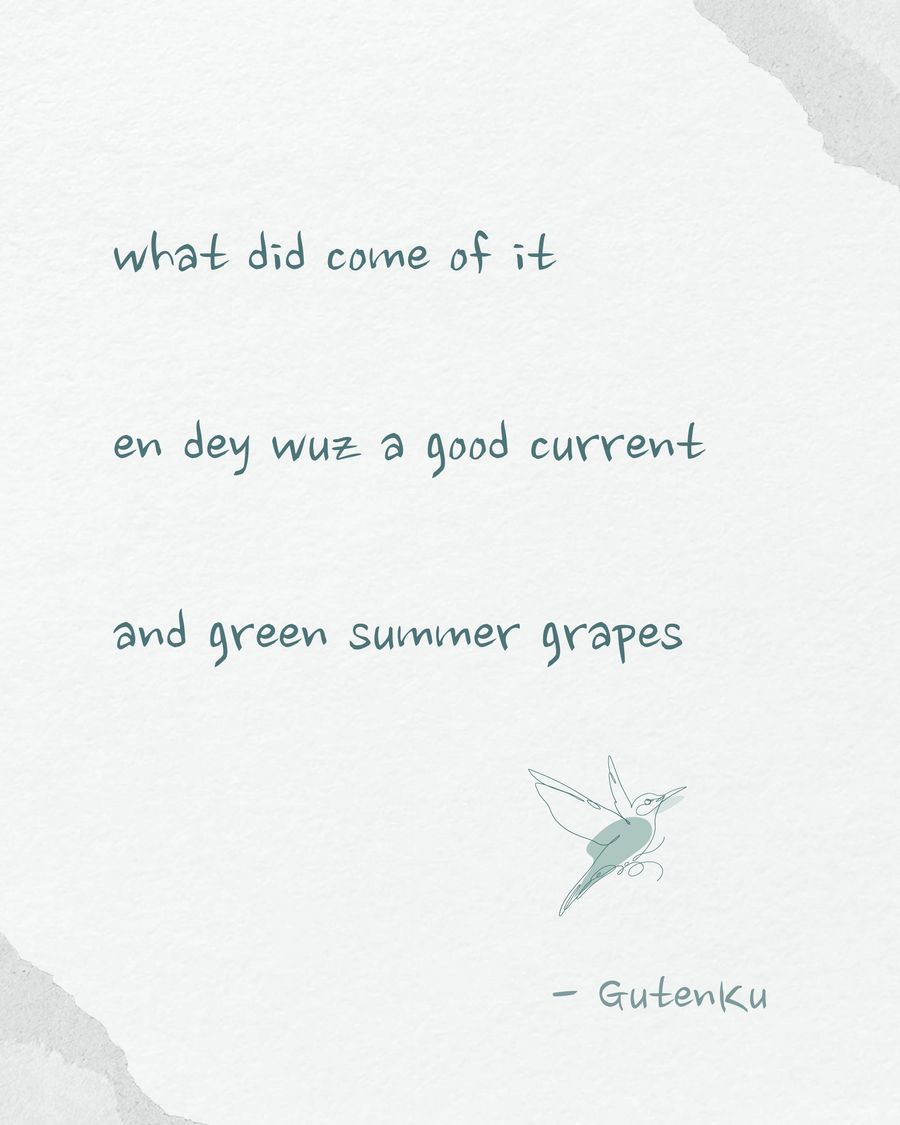 what did come of it
en dey wuz a good current
and green summer grapes
- GutenKu